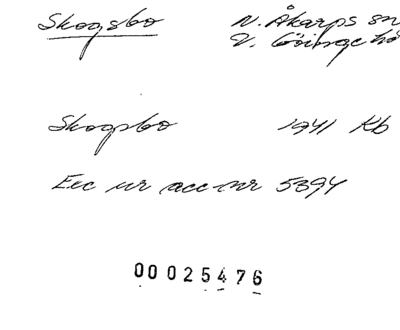 Skogsbo N. Åkarps sn
V. Göinge hd
Skogsbo 1941 Kb
Exc ur acc nr 5394
00025476